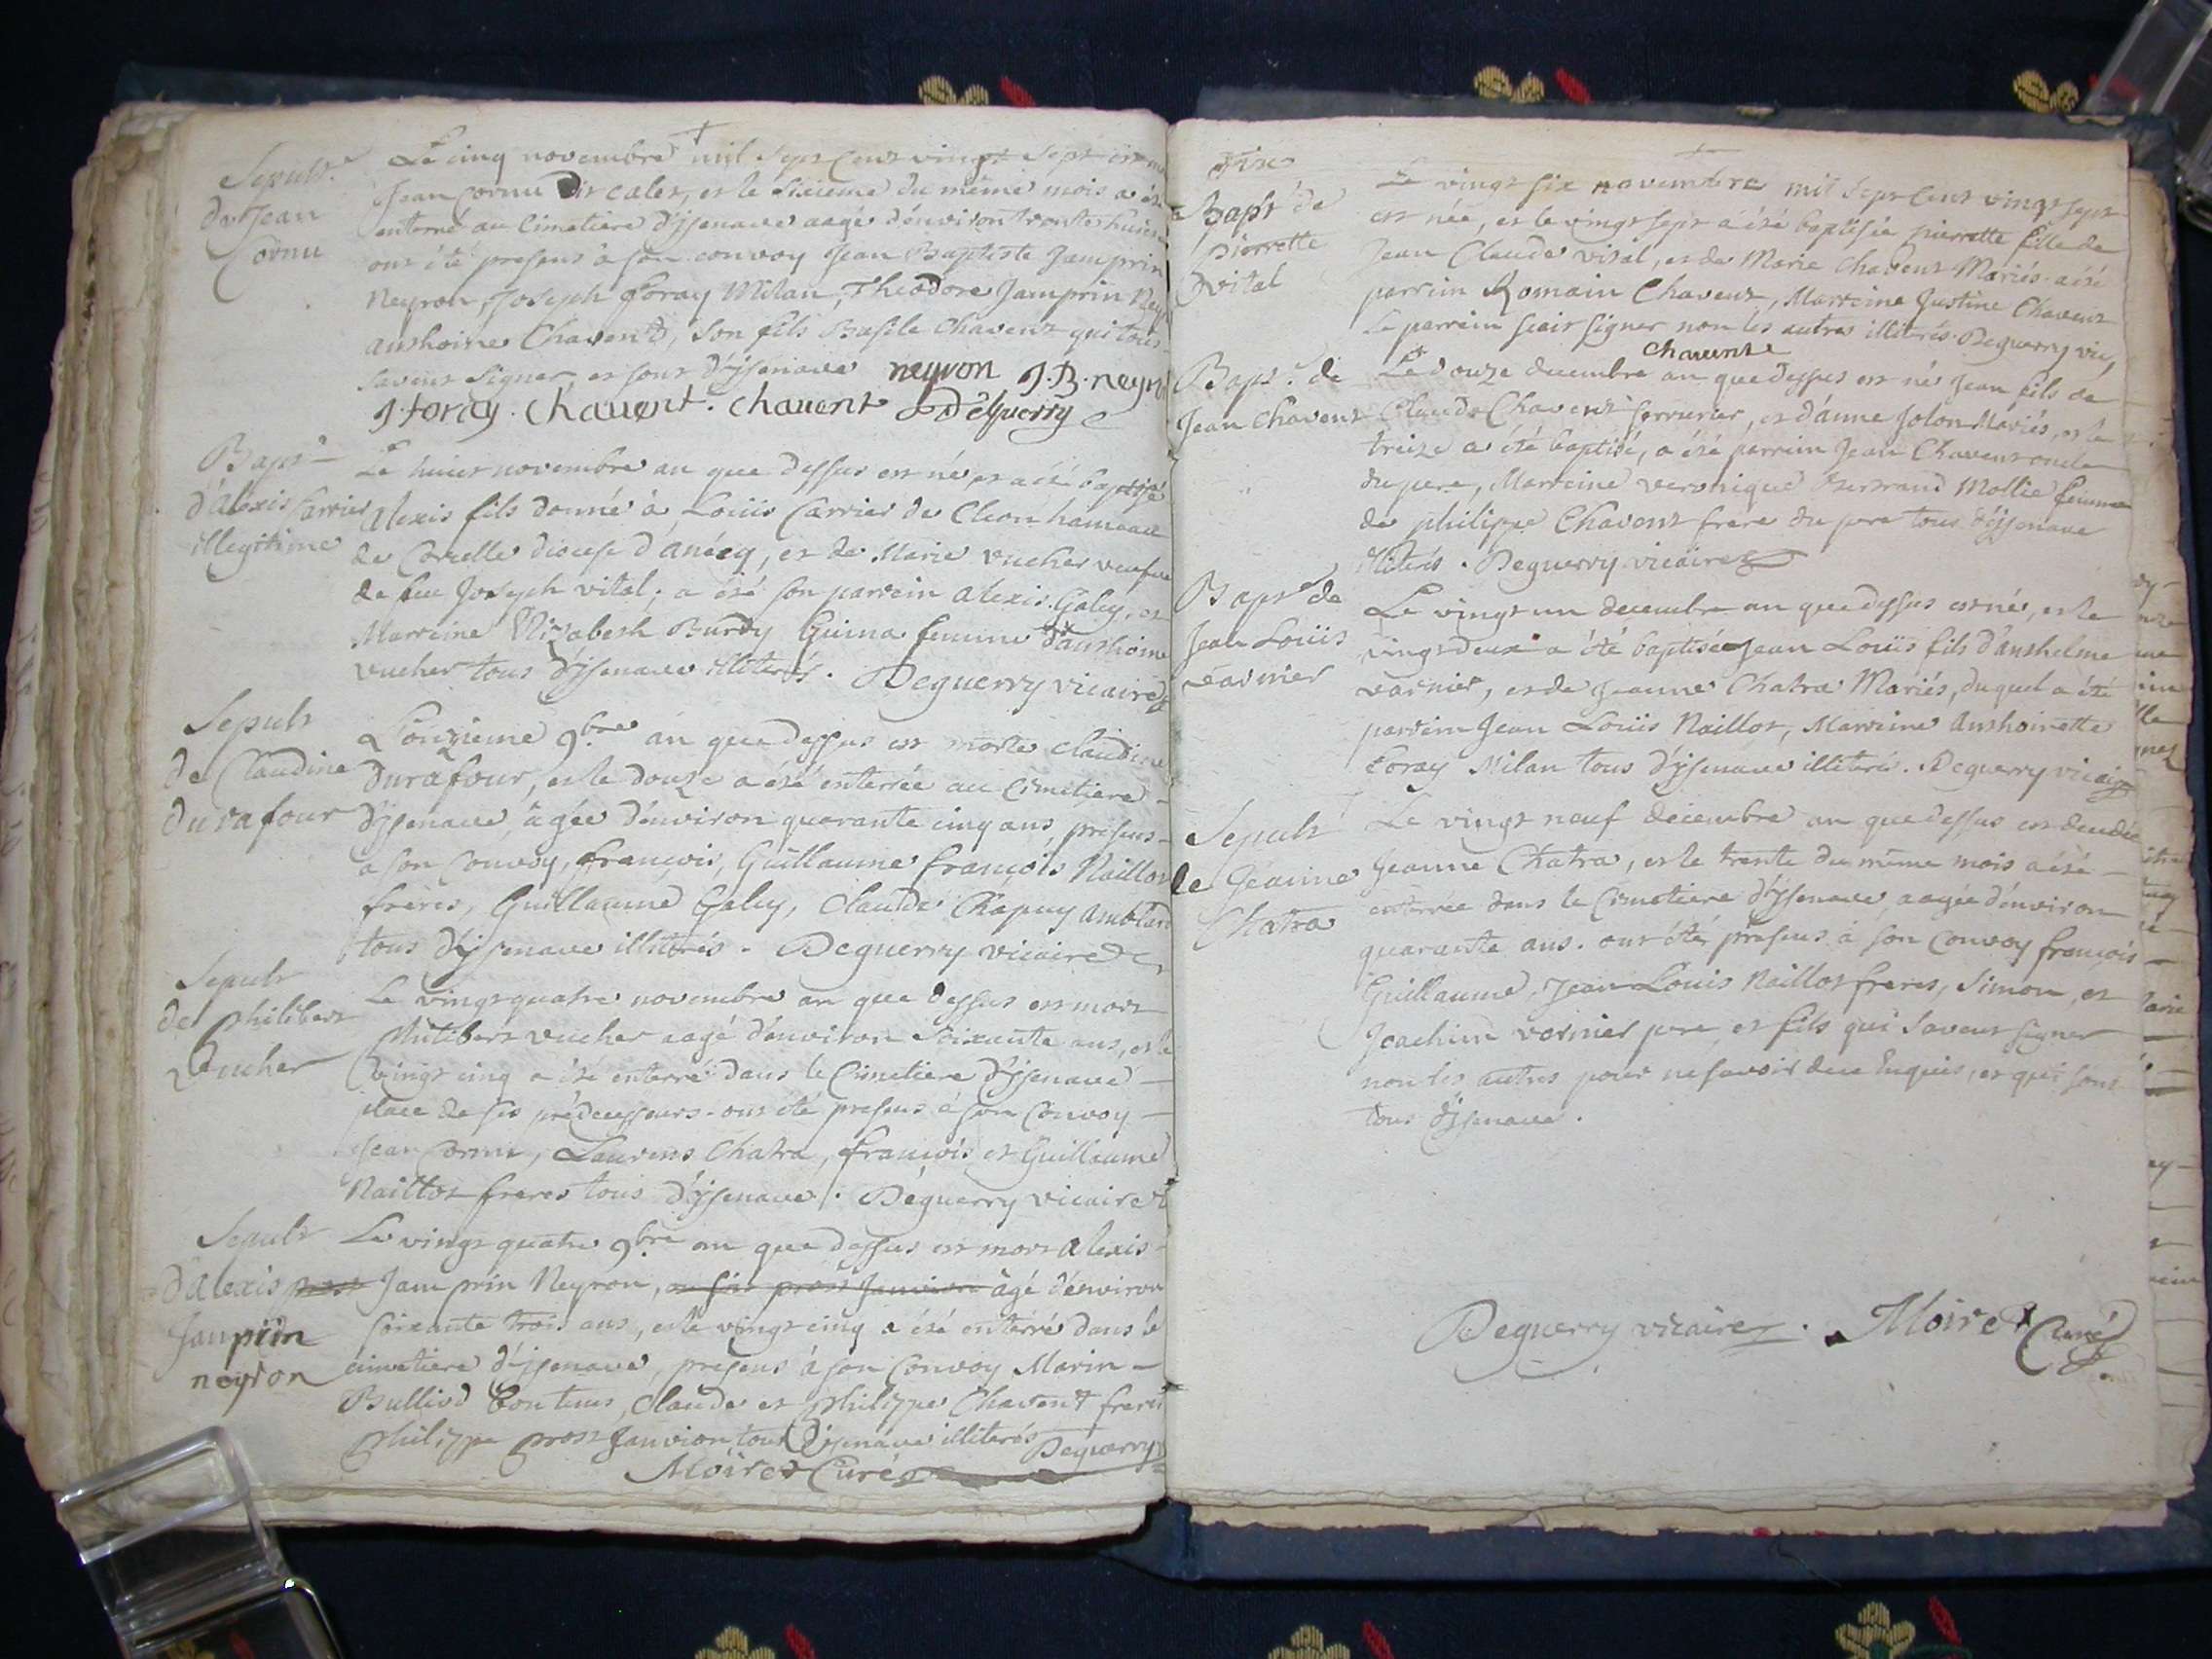 Sepult.e
de Jean
Cornu
Le cinq novembre mil sept cent vingt sept est
Jean Cornu dit calet, et le sixieme du même mois a été
enterré au Cimetiere d'yzenave aagé d'environ trente huit
ont été presens à son convoy Jean Baptiste Jamprin
Neyron, Joseph foray Milan, Theodore Jamprin
anthoine Chavent, son fils Basile Chavent qui tous
savent signer et sont d'yzenave neyron J.B. neyr
J foray. Chauent. chauent Deguerry
Bapt.e
d'alexis Carrier
illegitime
Le huict novembre an que dessus est né et a été baptisé
Alexis fils donné à Loüis Carrier de Cleon hameau
de Corcelle diocese d'anécy, et de Marie vucher veufve
de feu Joseph vital; a été son parrein alexis Galey, et
Marreine Elizabeth Burdy Guima femme d'anthoine
vucher tous d'yzenave illiterés. Deguerry vicaire
Sepult
de Claudine
durafour
L'onzieme 9bre an que dessus est morte claudine
durafour, et le douze a été enterrée au Cimetiere
d'yzenave, âgée d'environ quarante cinq ans, presens
a son Convoy, françois, Guillaume françois Naillot
freres, Guillaume Galey, Claude Chapuy amblard
tous d'yzenave illiterés. Deguerry vicaire
Sepult
de Philibert
Vucher
Le vingt quatre novembre an que dessus est mort
Philibert vucher aagé d'environ Soixante ans, et le
vingt cinq a été enterré dans le Cimetiere d'yzenave
place de ses prédecesseurs. ont été presens à son Convoy
Jean Cornu, Laurens Chatra, françois et Guillaume
Naillot freres tous d'yzenave. Déguerry vicaire
Sepult
d'Alexis prost
Jamprin
neyron
Le vingt quatre 9bre an que dessus est mort alexis
Jamprin Neyron, prost Janvion âgé d'environ
soixante trois ans, et le vingt cinq a été enterré dans le
cimetiere d'yzenave, presens à son Convoy Marin
Bulliod Contans, Claude et Philippe Chavent freres
Philippe prost Janvion tous d'yzenave illiterés Deguerry
Moiret Curé
Bapt.e de
Pierrette
vital
Le vingt six novembre mil sept cent vingt sept
est née, et le vingt sept a été baptisée pierrette fille de
Jean Claude vital, et de Marie Chavent Mariés. a été
parrein Romain Chavent, Marreine Justine Chavent
Le parrein scait signer non les autres illiterés. Deguerry vic,
chauent
Bapt.e de
Jean Chavent
Le douze decembre an que dessus est né Jean fils de
Claude Chavent serrurier, et d'anne Jolon Mariés, et le
treize a été baptisé, a été parrein Jean Chavent oncle
du pere, Marreine veronique Bertrand Mollie femme
de philippe Chavent frere du pere tous d'yzenave
illiterés. Deguerry vicaire
Bapt.e de
Jean Loüis
varnier
Le vingt un decembre an que dessus est né, et le
vingt deux a été baptisé Jean Loüis fils d'anthelme
varnier, et de Jeanne Chatra Mariés, duquel a été
parrein Jean Loüis Naillot, Marreine Anthoinette
foray Milan tous d'yzenave illiterés. Deguerry vicaire
Sepult
de Jeanne
Chatra
Le vingt neuf decembre an que dessus est decedée
Jeanne Chatra, et le trente du même mois a été
enterrée dans le Cimetiere d'yzenave, aagée d'environ
quarante ans. ont été presens à son Convoy françois
Guillaume, Jean Louis Naillot freres, Simon, et
Joachim varnier pere, et fils qui savent signer
non les autres pour ne savoir de ce enquis, et qui sont
tous d'yzenave.
Deguerry vicaire. Moiret Curé